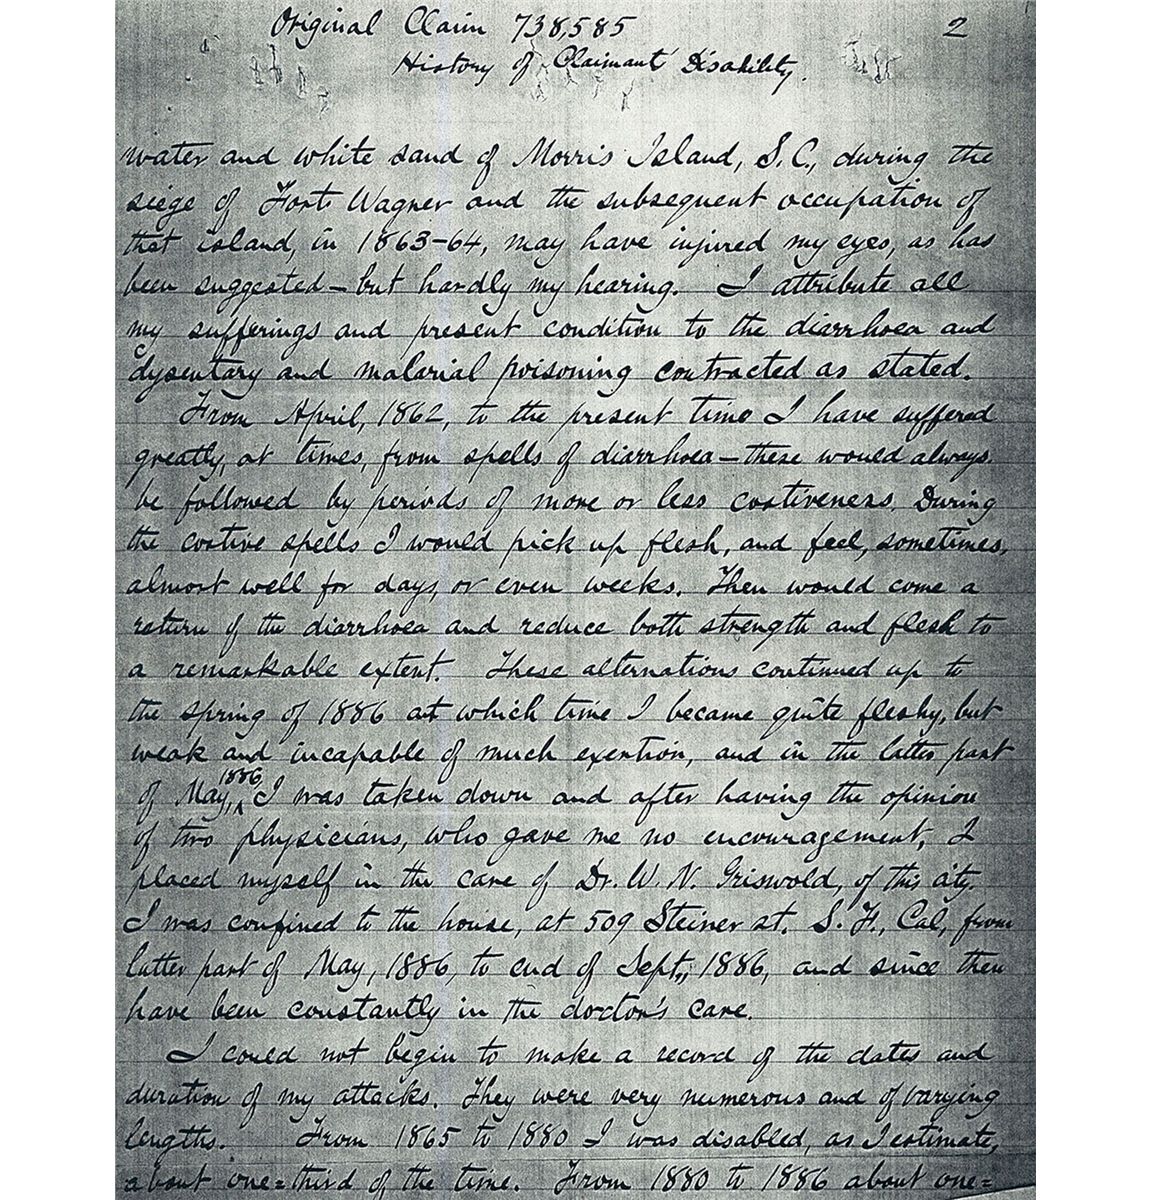 Original Claim 738,585 2
History of Claimant Disability.
water and white sand of Morris Island, S.C., during the
siege of Fort Wagner and the subsequent occupation of
that island, in 1863-64, may have injured my eyes, as has
been suggested - but hardly my hearing. I attribute all
my sufferings and present condition to the diarrhoea and
dysentary and malarial poisoning contracted as stated.
From April, 1862, to the present time I have suffered
greatly, at times, from spells of diarrhoea - these would always
be followed by periods of more or less costiveness. During
the costive spells I would pick up flesh, and feel, sometimes,
almost well for days, or even weeks. Then would come a
return of the diarrhoea and reduce both strength and flesh to
a remarkable extent. These alternations continued up to
the spring of 1886 at which time I became quite fleshy, but
weak and incapable of much exertion, and in the latter part
of May, 1886, I was taken down and after having the opinion
of two physicians, who gave me no encouragement, I
placed myself in the care of Dr. W. N. Griswold, of this city.
I was confined to the house, at 509 Steiner st. S.F., Cal, from
latter part of May, 1886, to end of Sept., 1886, and since then
have been constantly in the doctor's care.
I could not begin to make a record of the dates and
duration of my attacks. They were very numerous and of varying
lengths. From 1865 to 1880 I was disabled, as I estimate,
about one=third of the time. From 1880 to 1886 about one=